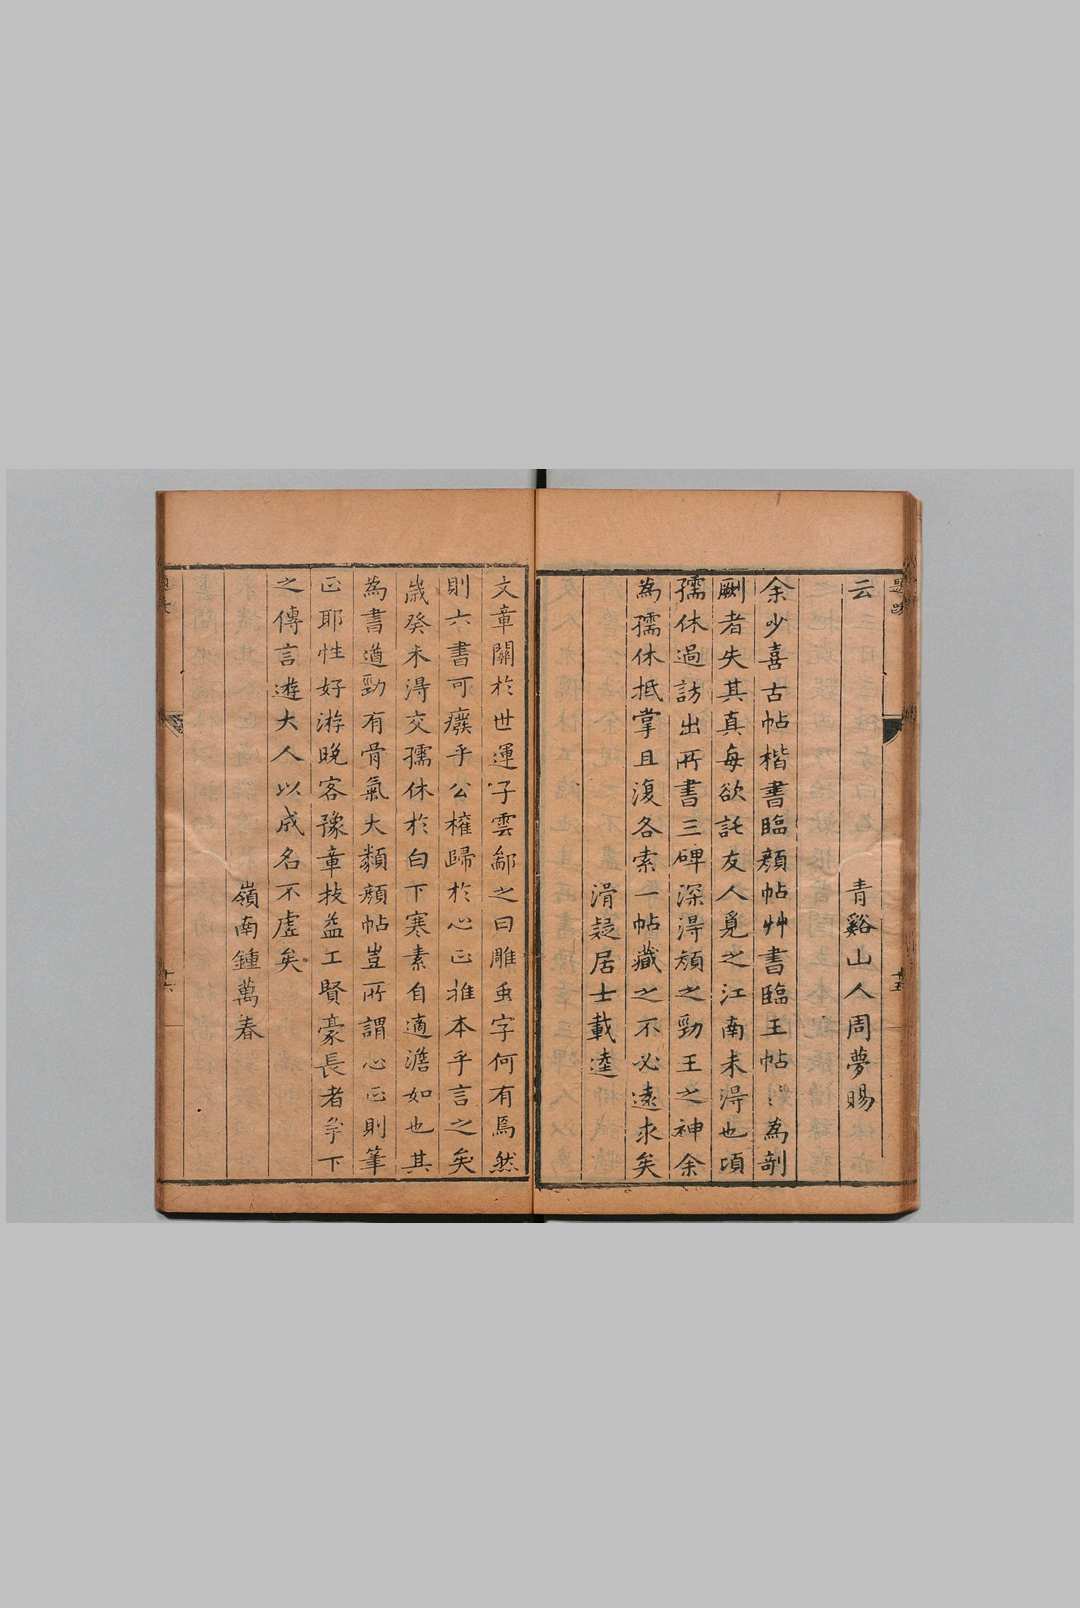 題跋
十五
云
青谿山人周夢賜
余少喜古帖楷書臨顏帖艸書臨王帖為剞
劂者失其真每欲託友人覓之江南未淂也項
孺休過訪出所書三碑深淂顏之勁王之神余
為孺休抵掌且復各索一帖藏之不必遠求矣
滑疑居士載逵
文章關於世運子雲鄙之曰雕虫字何有焉然
則六書可癈乎公權歸於心正推本乎言之矣
歲癸未淂交孺休於白下寒素自適澹如也其
為書遒勁有骨氣大類顏帖豈所謂心正則筆
正耶性好游晚客豫章技益工賢豪長者爭下
之傳言遊大人以成名不虛矣
嶺南鍾萬春
十六